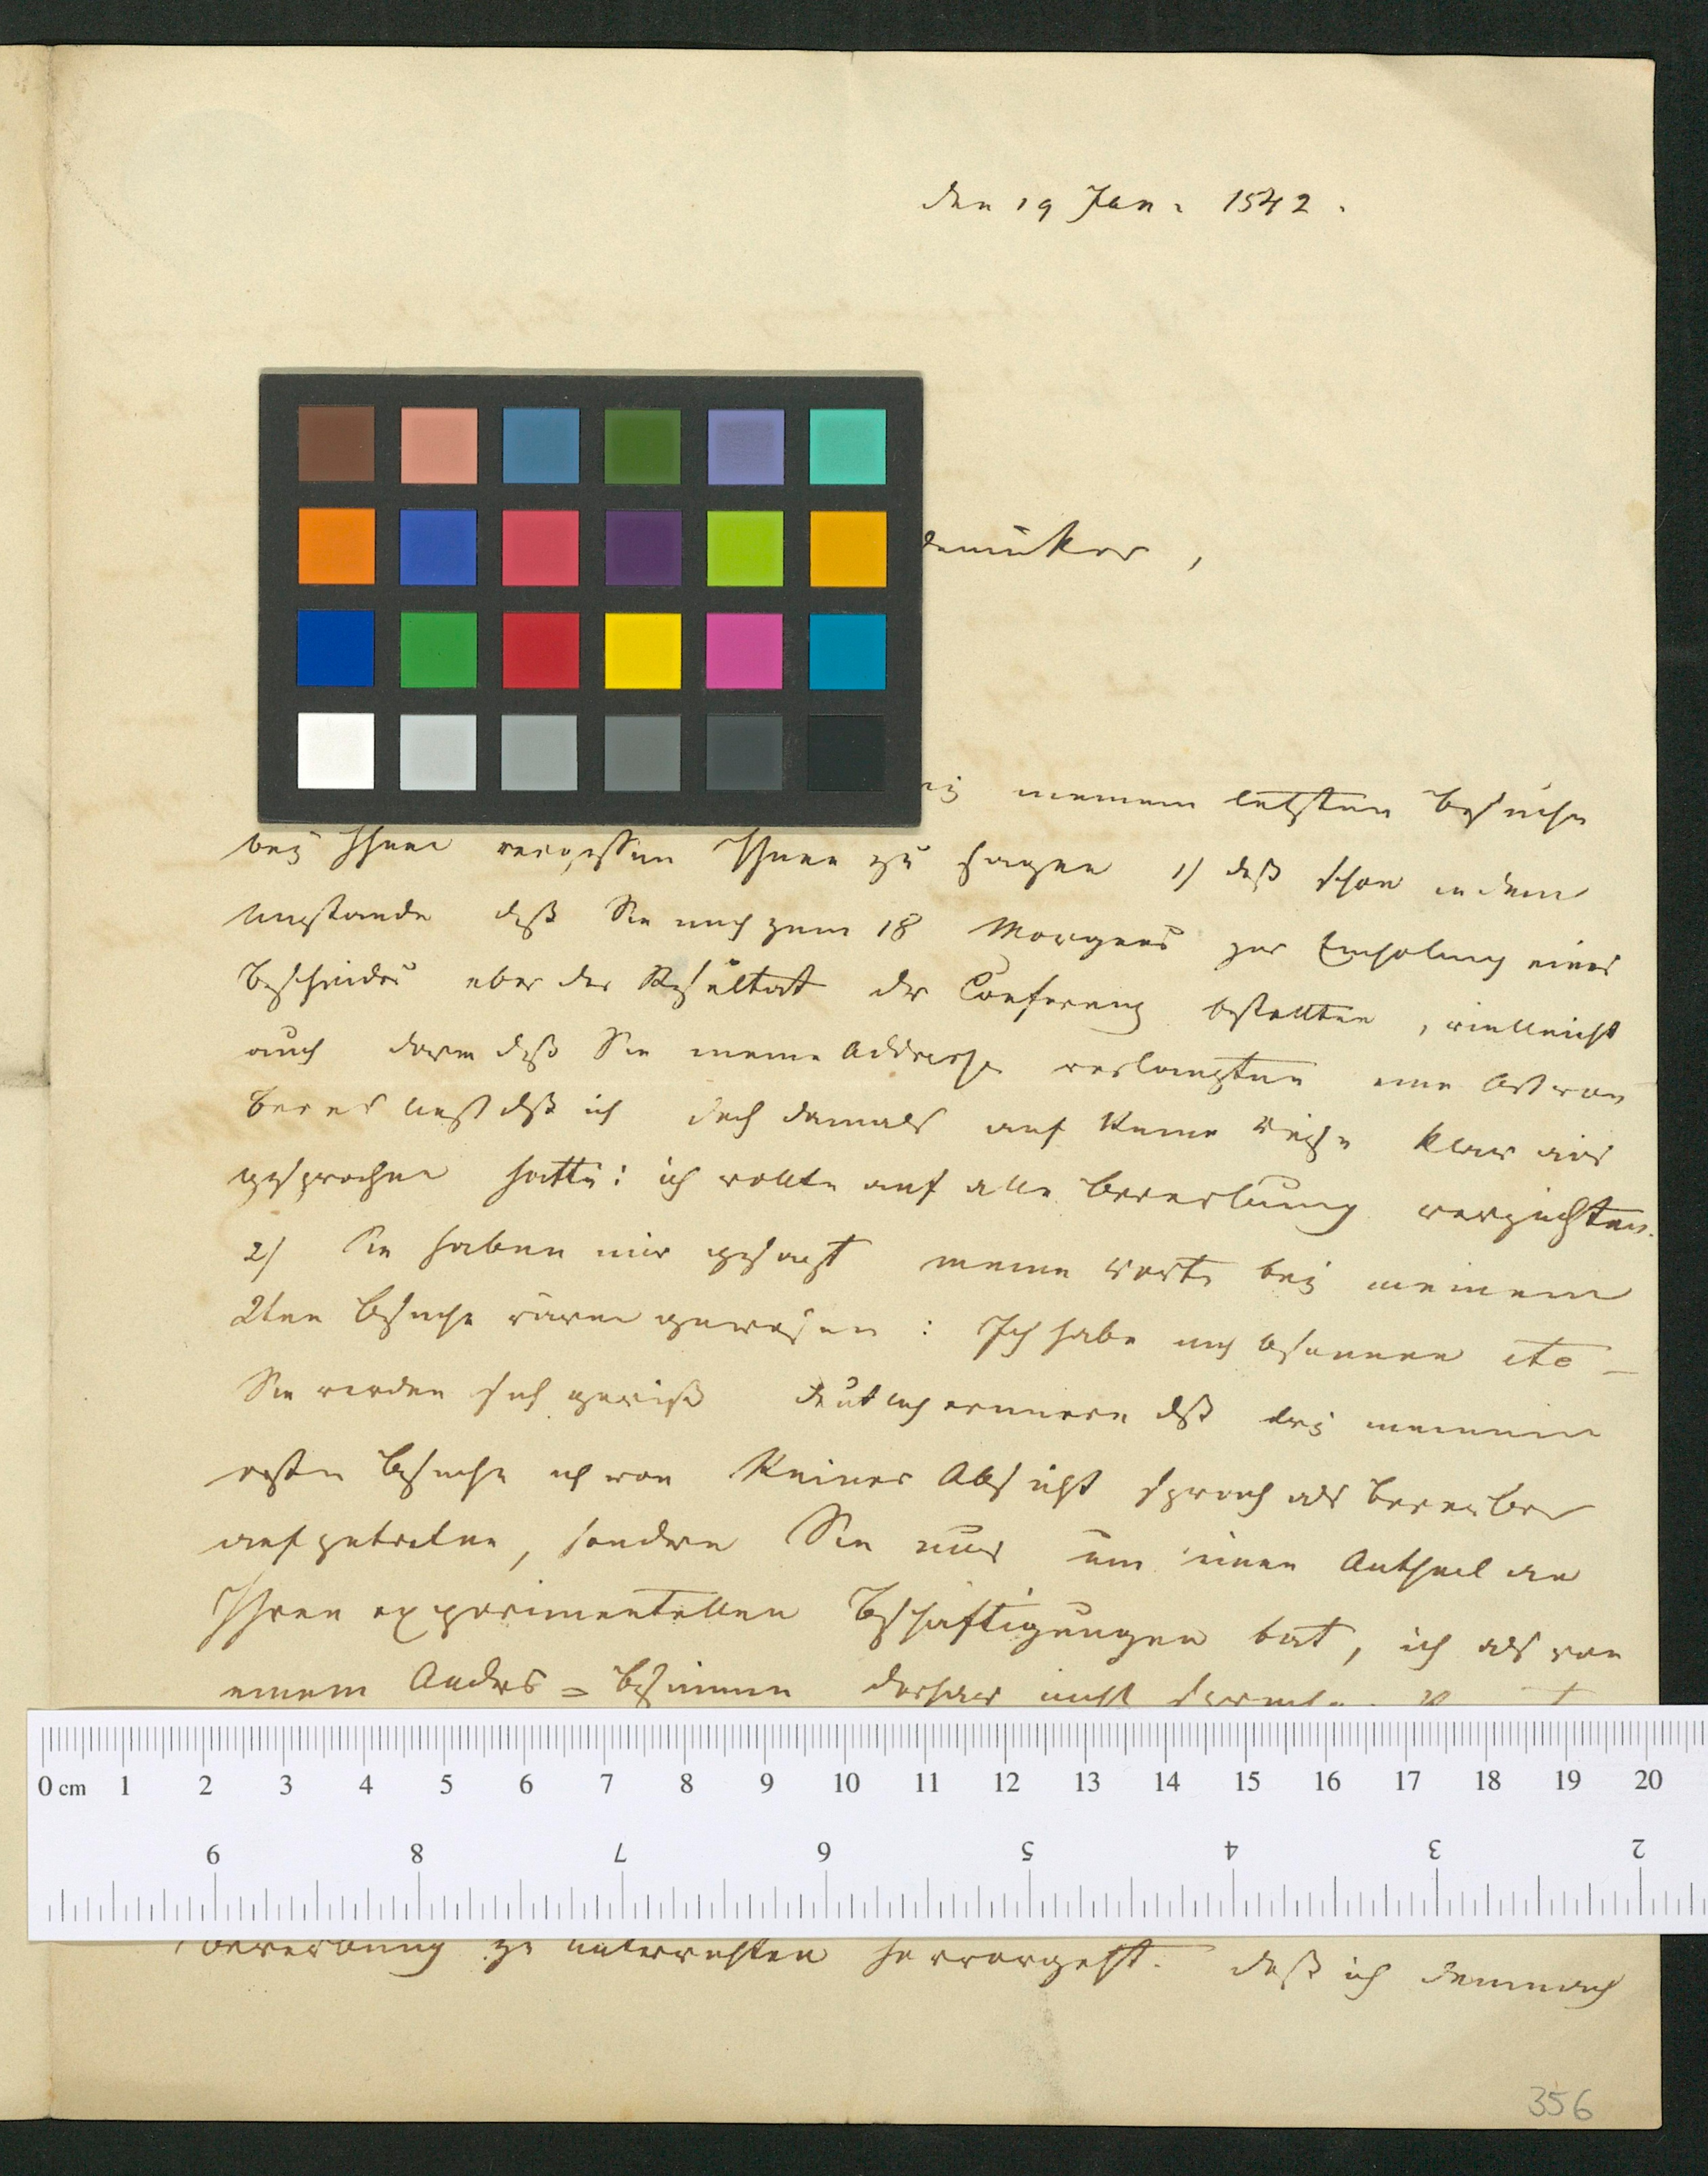 den 19 Jan. 1842.
demiker,
meinem letzten Besuche
bei Ihnen vergessen Ihnen zu sagen 1) daß schon in dem
Umstande daß Sie mich zum 18 Morgens zur Einholung eines
Bescheides über das Resultat der Conferenz bestellten, vielleicht
auch darin daß Sie meine Addresse verlangten eine Art von
ließ daß ich doch damals auf keine Weise klar aus
gesprochen hatte: ich wollte auf alle Bewerbung verzichten.
2) Sie haben mir gesagt meine Worte bei meinem
2ten Besuche wären gewesen: Ich habe mich besonnen etc –
Sie werden sich gewiß deutlich erinnern daß bei meinem
ersten Besuche ich von keiner Absicht sprach als Bewerber
aufzutreten, sondern Sie nur um einen Antheil an
Ihren experimentellen Beschäftigungen bat, ich also von
einem Anders = Besinnen daher nicht
Bewerbung zu unterrichten hervorgeht. daß ich demnach
356
0 cm 1 2 3 4 5 6 7 8 9 10 11 12 13 14 15 16 17 18 19 20
9 8 7 6 5 4 3 2